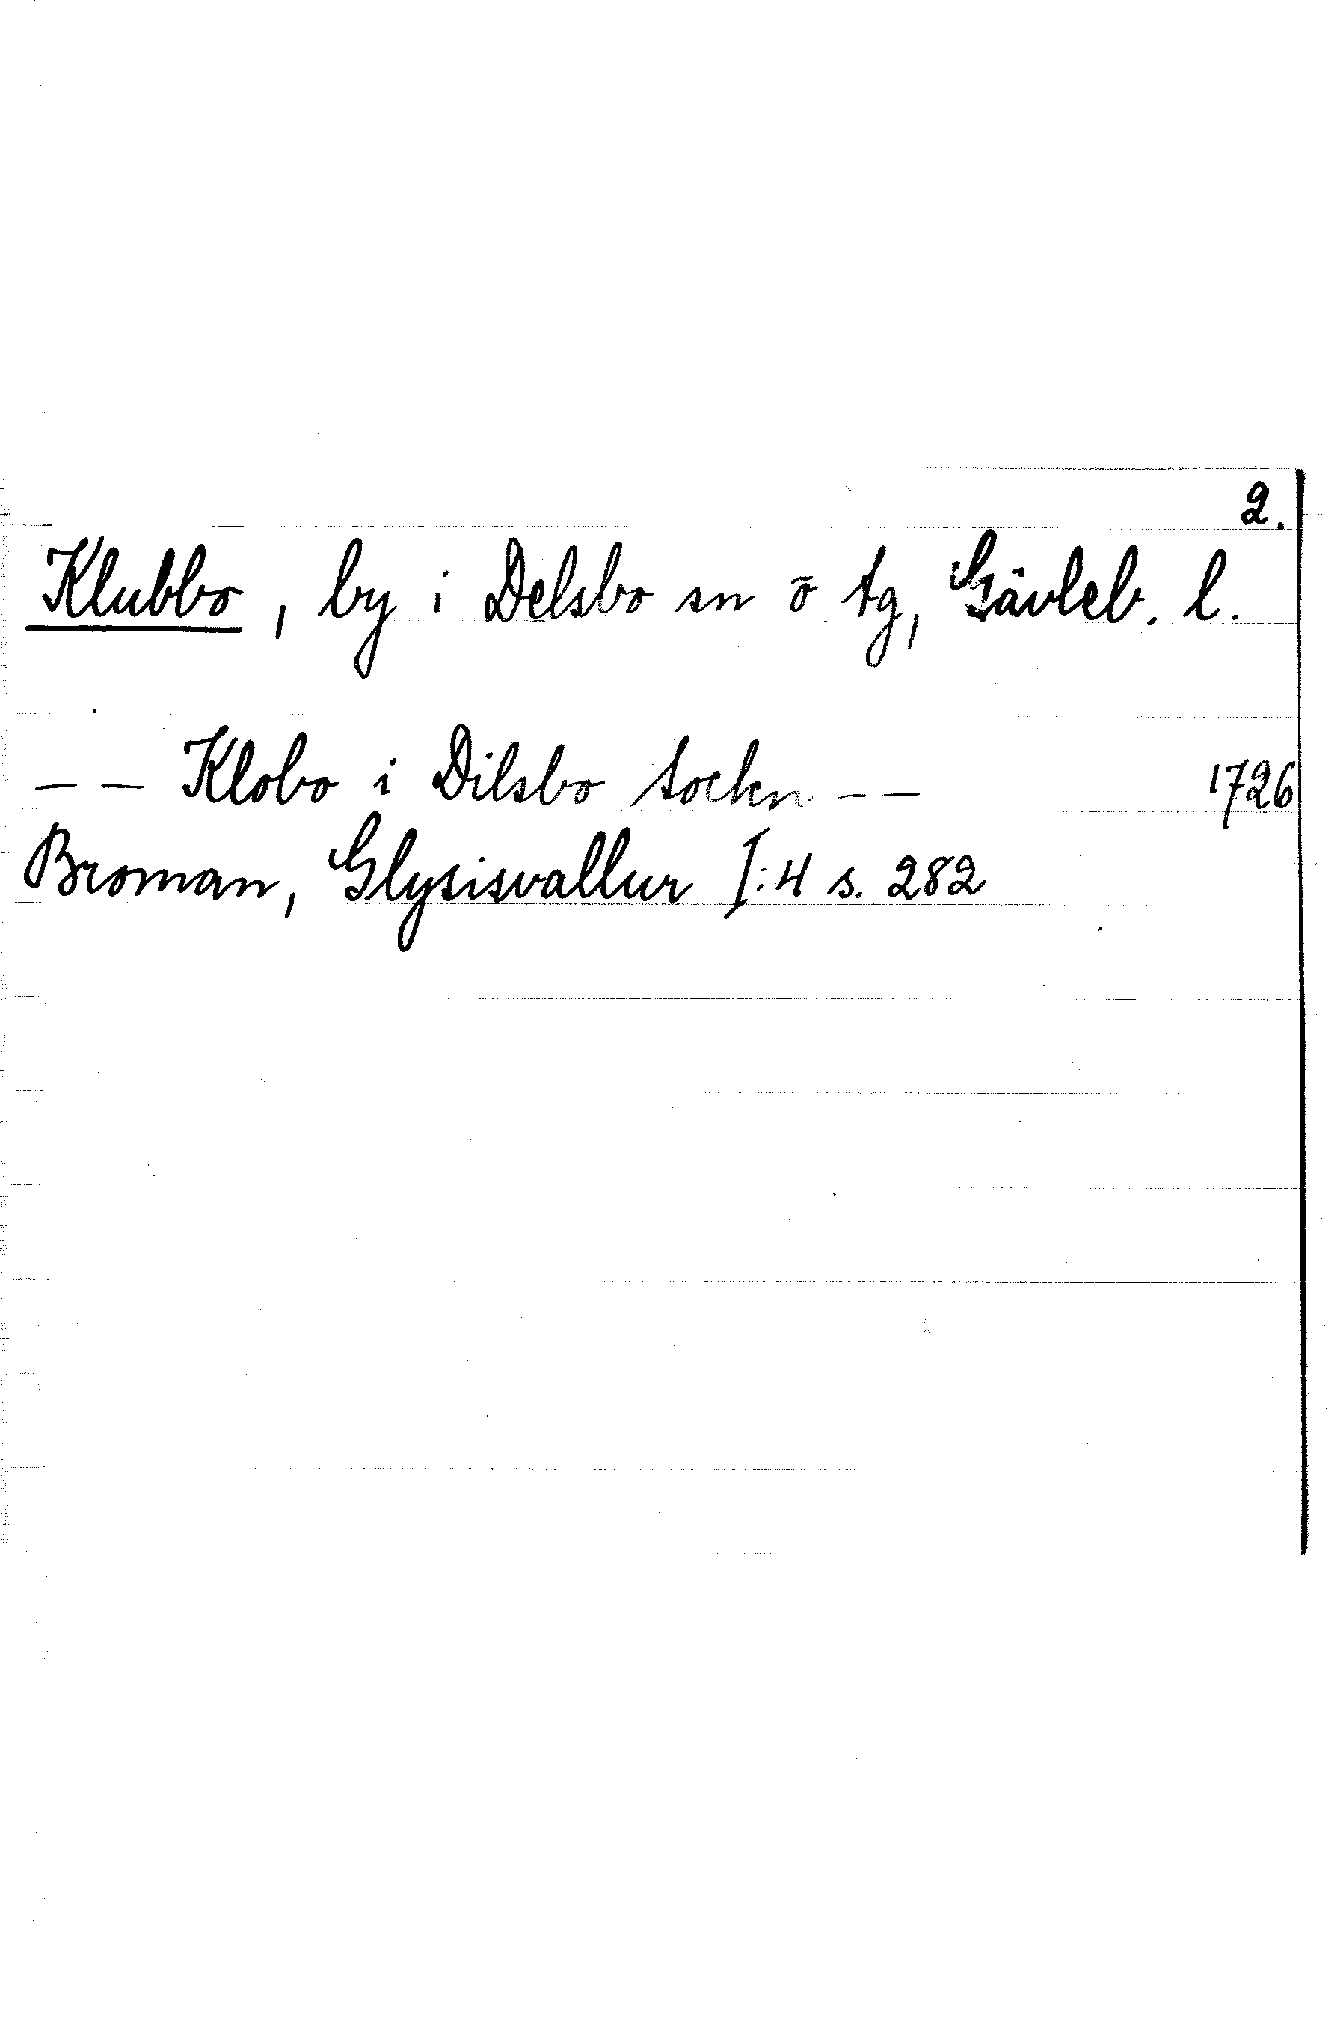 2.
Klubbo, by i Delsbo sn o tg, Gävleb. l.
– – Klobo i Dilsbo sockn – – 1726
Broman, Glysisvallur I:4 s. 282